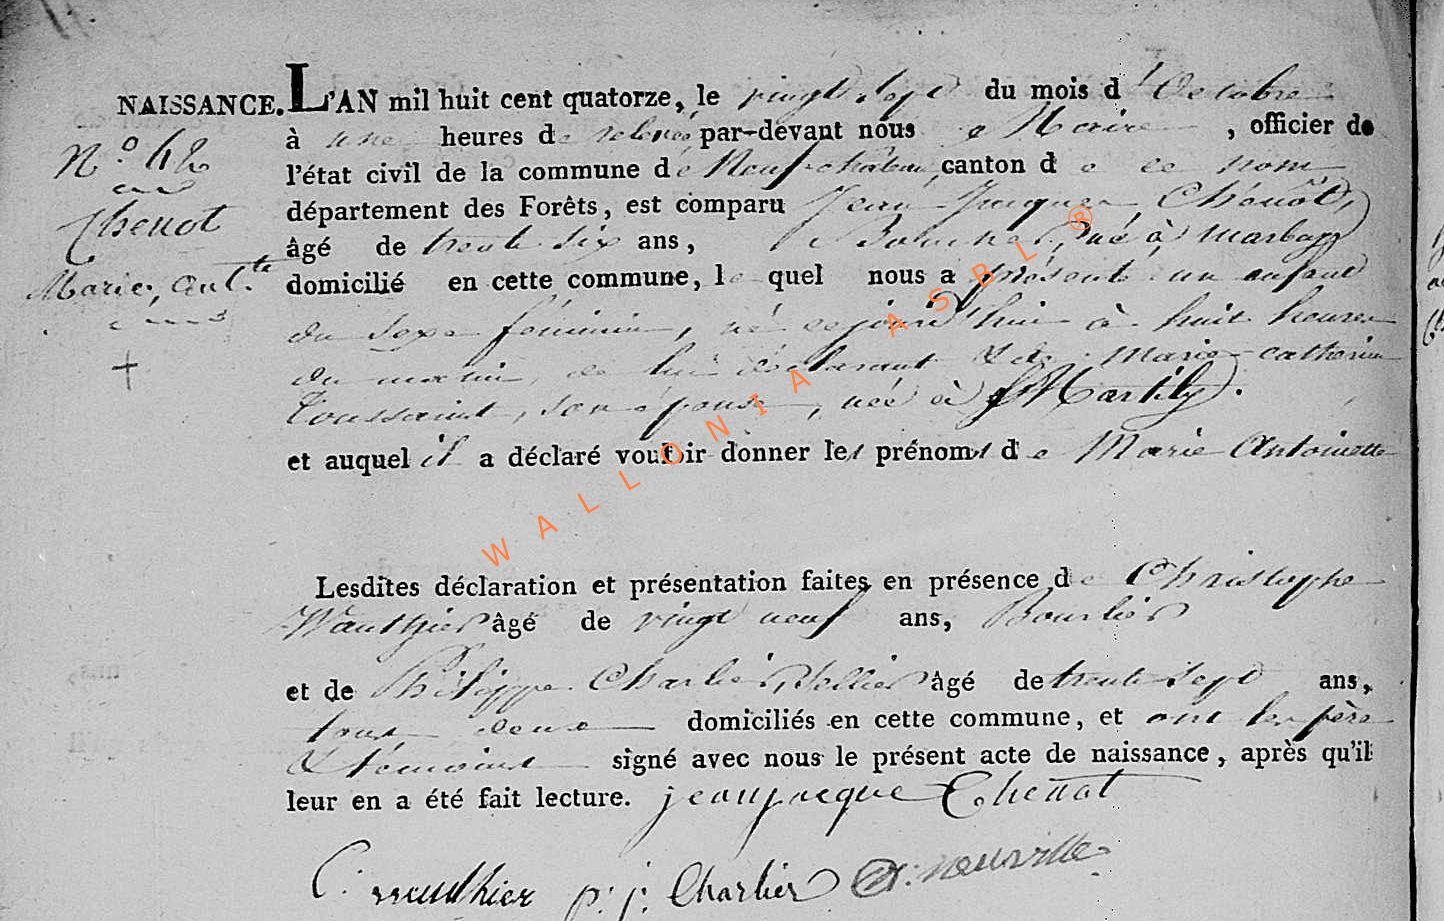 NAISSANCE. L'AN mil huit cent quatorze, le vingt sept du mois d'Octobre
N.º 42
à une heures de relevée par-devant nous Maire, officier de
l'état civil de la commune de Neufchâteau, canton de ce nom
Thenot
département des Forêts, est comparu Jean Jacques Thénot,
âgé de trente six ans, né à Marbay
Marie, Ant.te
domicilié en cette commune, lequel nous a présenté un enfant
du sexe féminin, né cejourd'hui à huit heures
du matin, de lui déclarant & de Marie catherine
toussaint, son épouse, née à Martilly.
et auquel il a déclaré vouloir donner les prénoms de Marie Antoinette
Lesdites déclaration et présentation faites en présence de Christophe
Wauthier âgé de vingt neuf ans, Bourlier
et de Philippe Charlier, Sellier âgé de trente sept ans,
tous deux domiciliés en cette commune, et ont les père
& témoins signé avec nous le présent acte de naissance, après qu'il
leur en a été fait lecture. jean jacque Thenot
C. wauthier p. j. Charlier neuville
WALLONIA ASBL ®